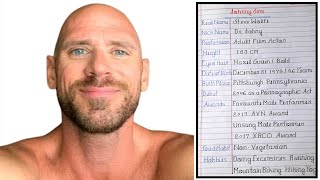 Johnny Sins
Real Name Steve Wolfe
Nick Name Dr. Johny
Profession Adult Film Actor
Height 183 CM
Eyes Hazel Green / Bald
Date of Birth December 31 1978
Birth Place Pittsburgh Pennsylvania
Debut 2006 as a Pornographic Act
Awards Favourite Male Performer
2017. AVN Award
Unsung Male Performer
2017. XBCO Award
Food Habit Non-Vegetarian
Hobbies Doing Excercises Running
Mountain Biking Hiking